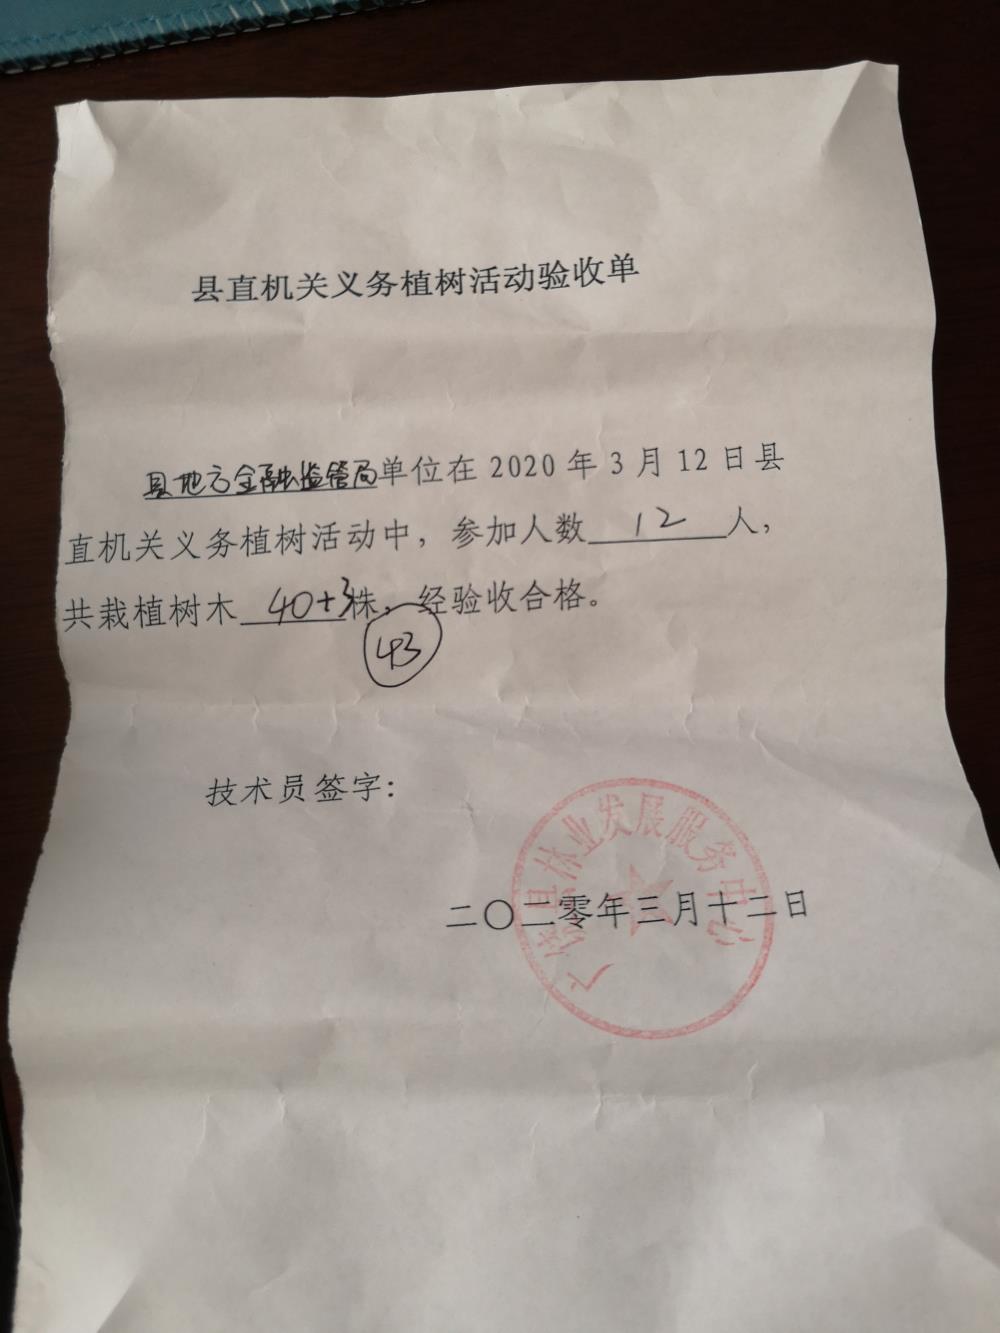 县直机关义务植树活动验收单
县地方金融监管局单位在 2020 年 3 月 12 日县
直机关义务植树活动中，参加人数 12 人，
共栽植树木 40+3株，经验收合格。
43
技术员签字：
二〇二零年三月十二日
广德县林业发展服务中心